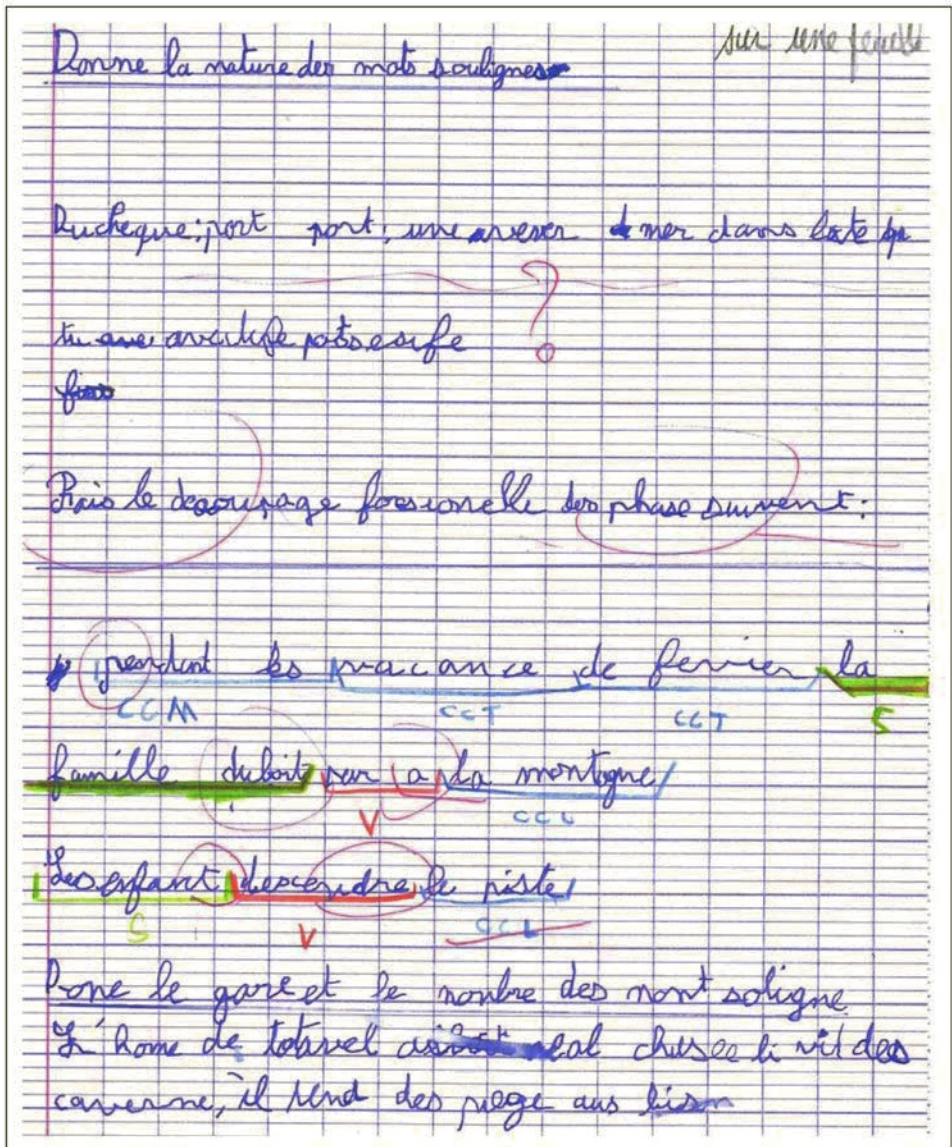 sur une feuille
Donne la nature des mots soulignes
Ducheque: port port: une mer dans
tu
Fais le decoupage fonsionelle des phase suivent:
pendant les vacance de fevrier la
CCM CCT CCT S
famille duboit var a la montagne
V CCL
Les enfant descendre le piste
S V CCL
Done le gare et le nombre des mont soligne
L'home de totavel chasee li vit des
caverne, il tend des piege aus bison